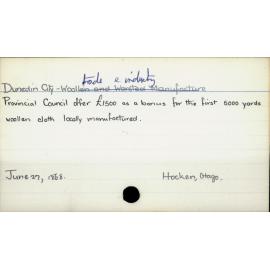 trade & industry
Dunedin City - Woollen and Worsted Manufacture
Provincial Council offer £1500 as a bonus for the first 5000 yards
woollen cloth locally manufactured.
June 27, 1868.
Hocken, Otago.